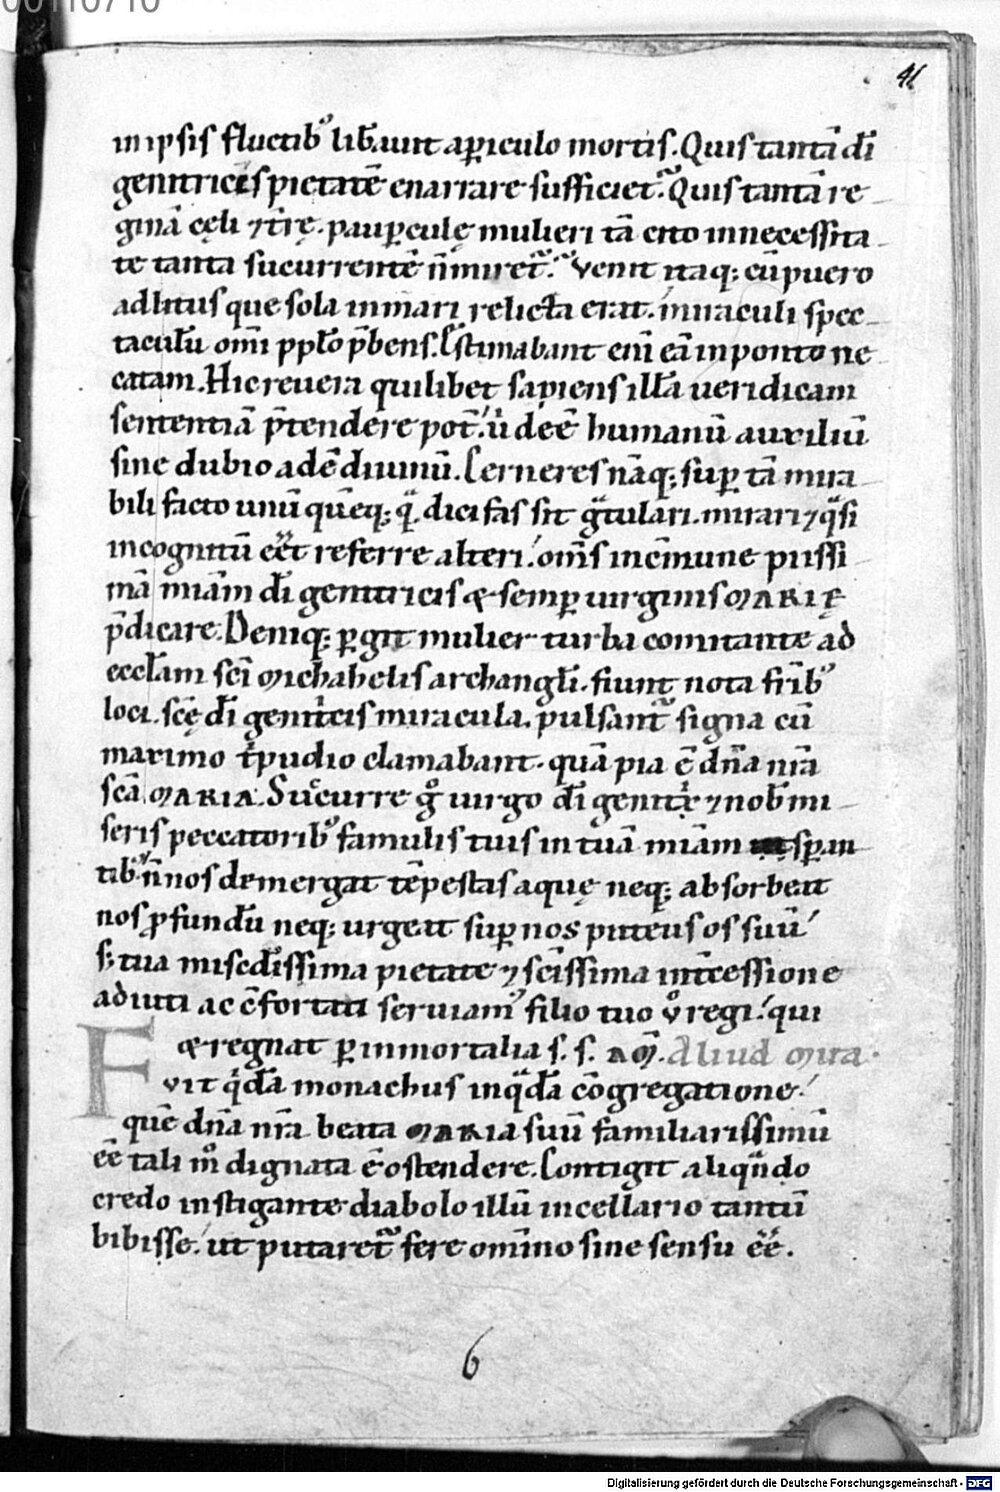 00110710
41
in ipsis fluctib' lib̄auit a ꝑiculo mortis. Quis tantā dī
genitricis pietatē enarrare sufficiet? Quis tantā re
ginā cęli ⁊ t̄rę. pauꝑculę mulieri tā cito in necessita
te tanta sucurrentē ñ miret᷑? Venit itaq; cū puero
ad litus que sola in mari relicta erat. miraculi spec
taculū om̄i pp̄lo p̄bens. Estimabant eni̅ eā in ponto ne
catam. Hic reuera quilibet sapiens illā ueridicam
sententiā p̄tendere pot̄. u̇ deē humanū auxiliū
sine dubio adē diuinū. Cerneres nāq; suꝑ tā mira
bili facto unū quēq; qͥ dici fas sit gͣtulari. mirari ⁊ qͣsi
incognitū eēt referre alteri. om̄s in c̄mune piissi
mā mi̅am dī genitricis & semꝑ uirginis MARIĘ
p̄dicare. Deniq; ꝑgit mulier turba comitante ad
eccl̄am sc̄i Michahelis archangl̄i. fiunt nota fr̄ib'
loci. sc̄ę dī genit̄cis miracula. pulsant᷑ signa cū
maximo tͥpudio clamabant. quā pia ē dn̄a nr̄a
sc̄a MARIA. Sucurre gͦ uirgo dī genitͥx ⁊ nob̄ mi
seris peccatorib' famulis tuis in tuā mi̅am sꝑan
tib' ñ nos demergat tēpestas aquę neq; absorbeat
nos ꝓfundū neq; urgeat suꝑ nos puteus os suū
s; tua misc̄dissima pietate ⁊ sc̄issima int̄cessione
adiuti ac c̄fortati seruiam' filio tuo uͦ regi. qui
& regnat ꝑ inmortalia s. s. AM̄. Aliud mira.
FVIT qͥdā monachus in qͣdā cōgregatione.
quē dn̄a nr̄a beata MARIA suū familiarissimū
eē tali mͦ dignata ē ostendere. Contigit aliqͣndo
credo instigante diabolo illū in cellario tantū
bibisse. ut putaret᷑ fere omīno sine sensu eē.
6
Digitalisierung gefördert durch die Deutsche Forschungsgemeinschaft - DFG